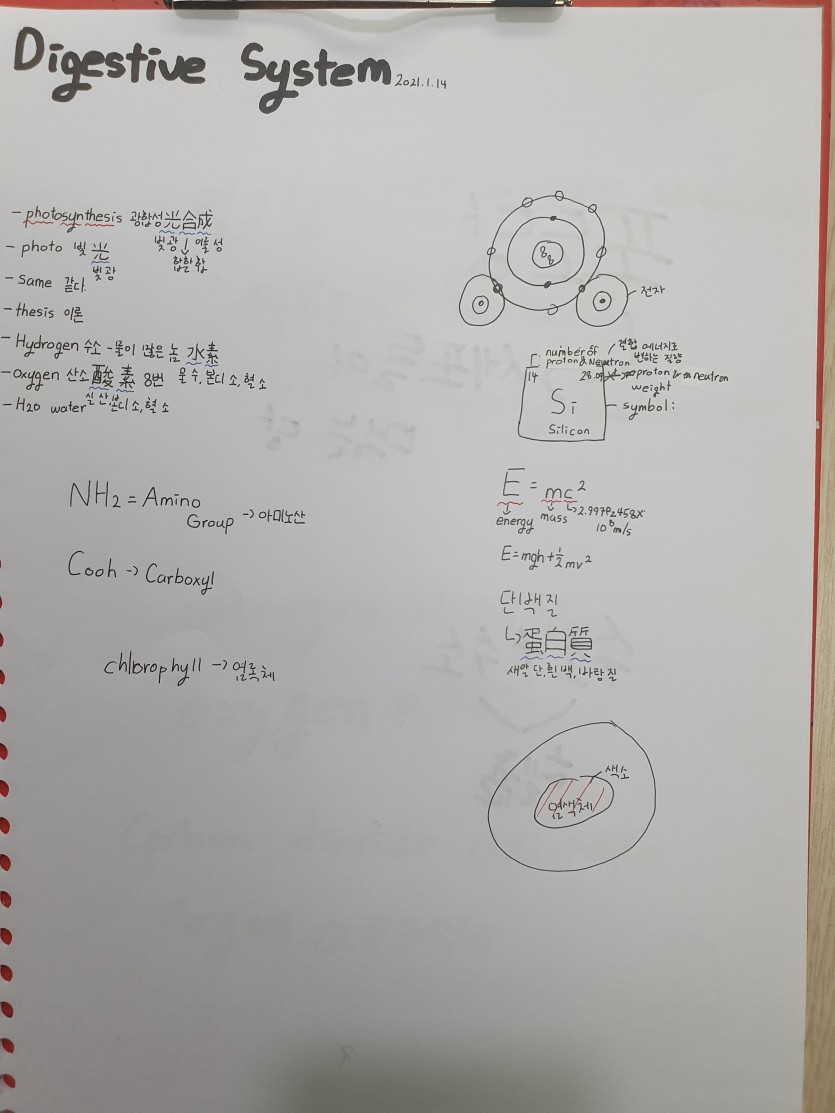 Digestive System 2021.1.14
- photosynthesis 광합성 光合成
빛 광 이룰 성
합할 합
- photo 빛 光
빛 광
- Same 같다.
- thesis 이론
- Hydrogen 수소 - 물이 많은 놈 水素
- Oxygen 산소 酸素 8번 물 수, 본디 소, 흴 소
- H2O water 실 산, 본디 소, 흴 소
NH2 = Amino
Group -> 아미노산
Cooh -> Carboxyl
chlorophyll -> 엽록체
8
8
전자
number of
proton & Neutron
결합 에너지로
변하는 질량
14
28.0
proton & neutron
weight
Si
symbol:
Silicon
E = mc2
energy mass 2.99792458x
108 m/s
E=mgh+1/2mv2
단백질
蛋白質
새알 단, 흰 백, 바탕 질
색소
염색체